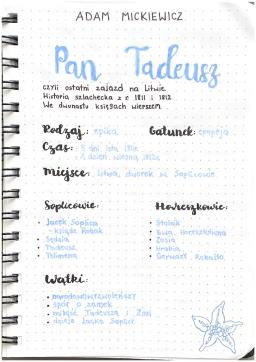 ADAM MICKIEWICZ
Pan Tadeusz
czyli ostatni zajazd na Litwie
Historia szlachecka z r. 1811 i 1812
We dwunastu księgach wierszem
Rodzaj: epika Gatunek: epopeja
Czas: - 5 dni, lata, 1811r
- 1 dzień, wiosna, 1812r
Miejsce: Litwa, dworek w Soplicowie
Soplicowie:
• Jacek Soplica
- ksiądz Robak
• Sędzia
• Tadeusz
• Telimena
Horeszkowie:
• Stolnik
• Ewa Horeszkówna
• Zosia
• Hrabia
• Gerwazy Rębajło
Wątki:
• narodowowyzwoleńczy
• spór o zamek
• miłość Tadeusza i Zosi
• dzieje Jacka Soplicy